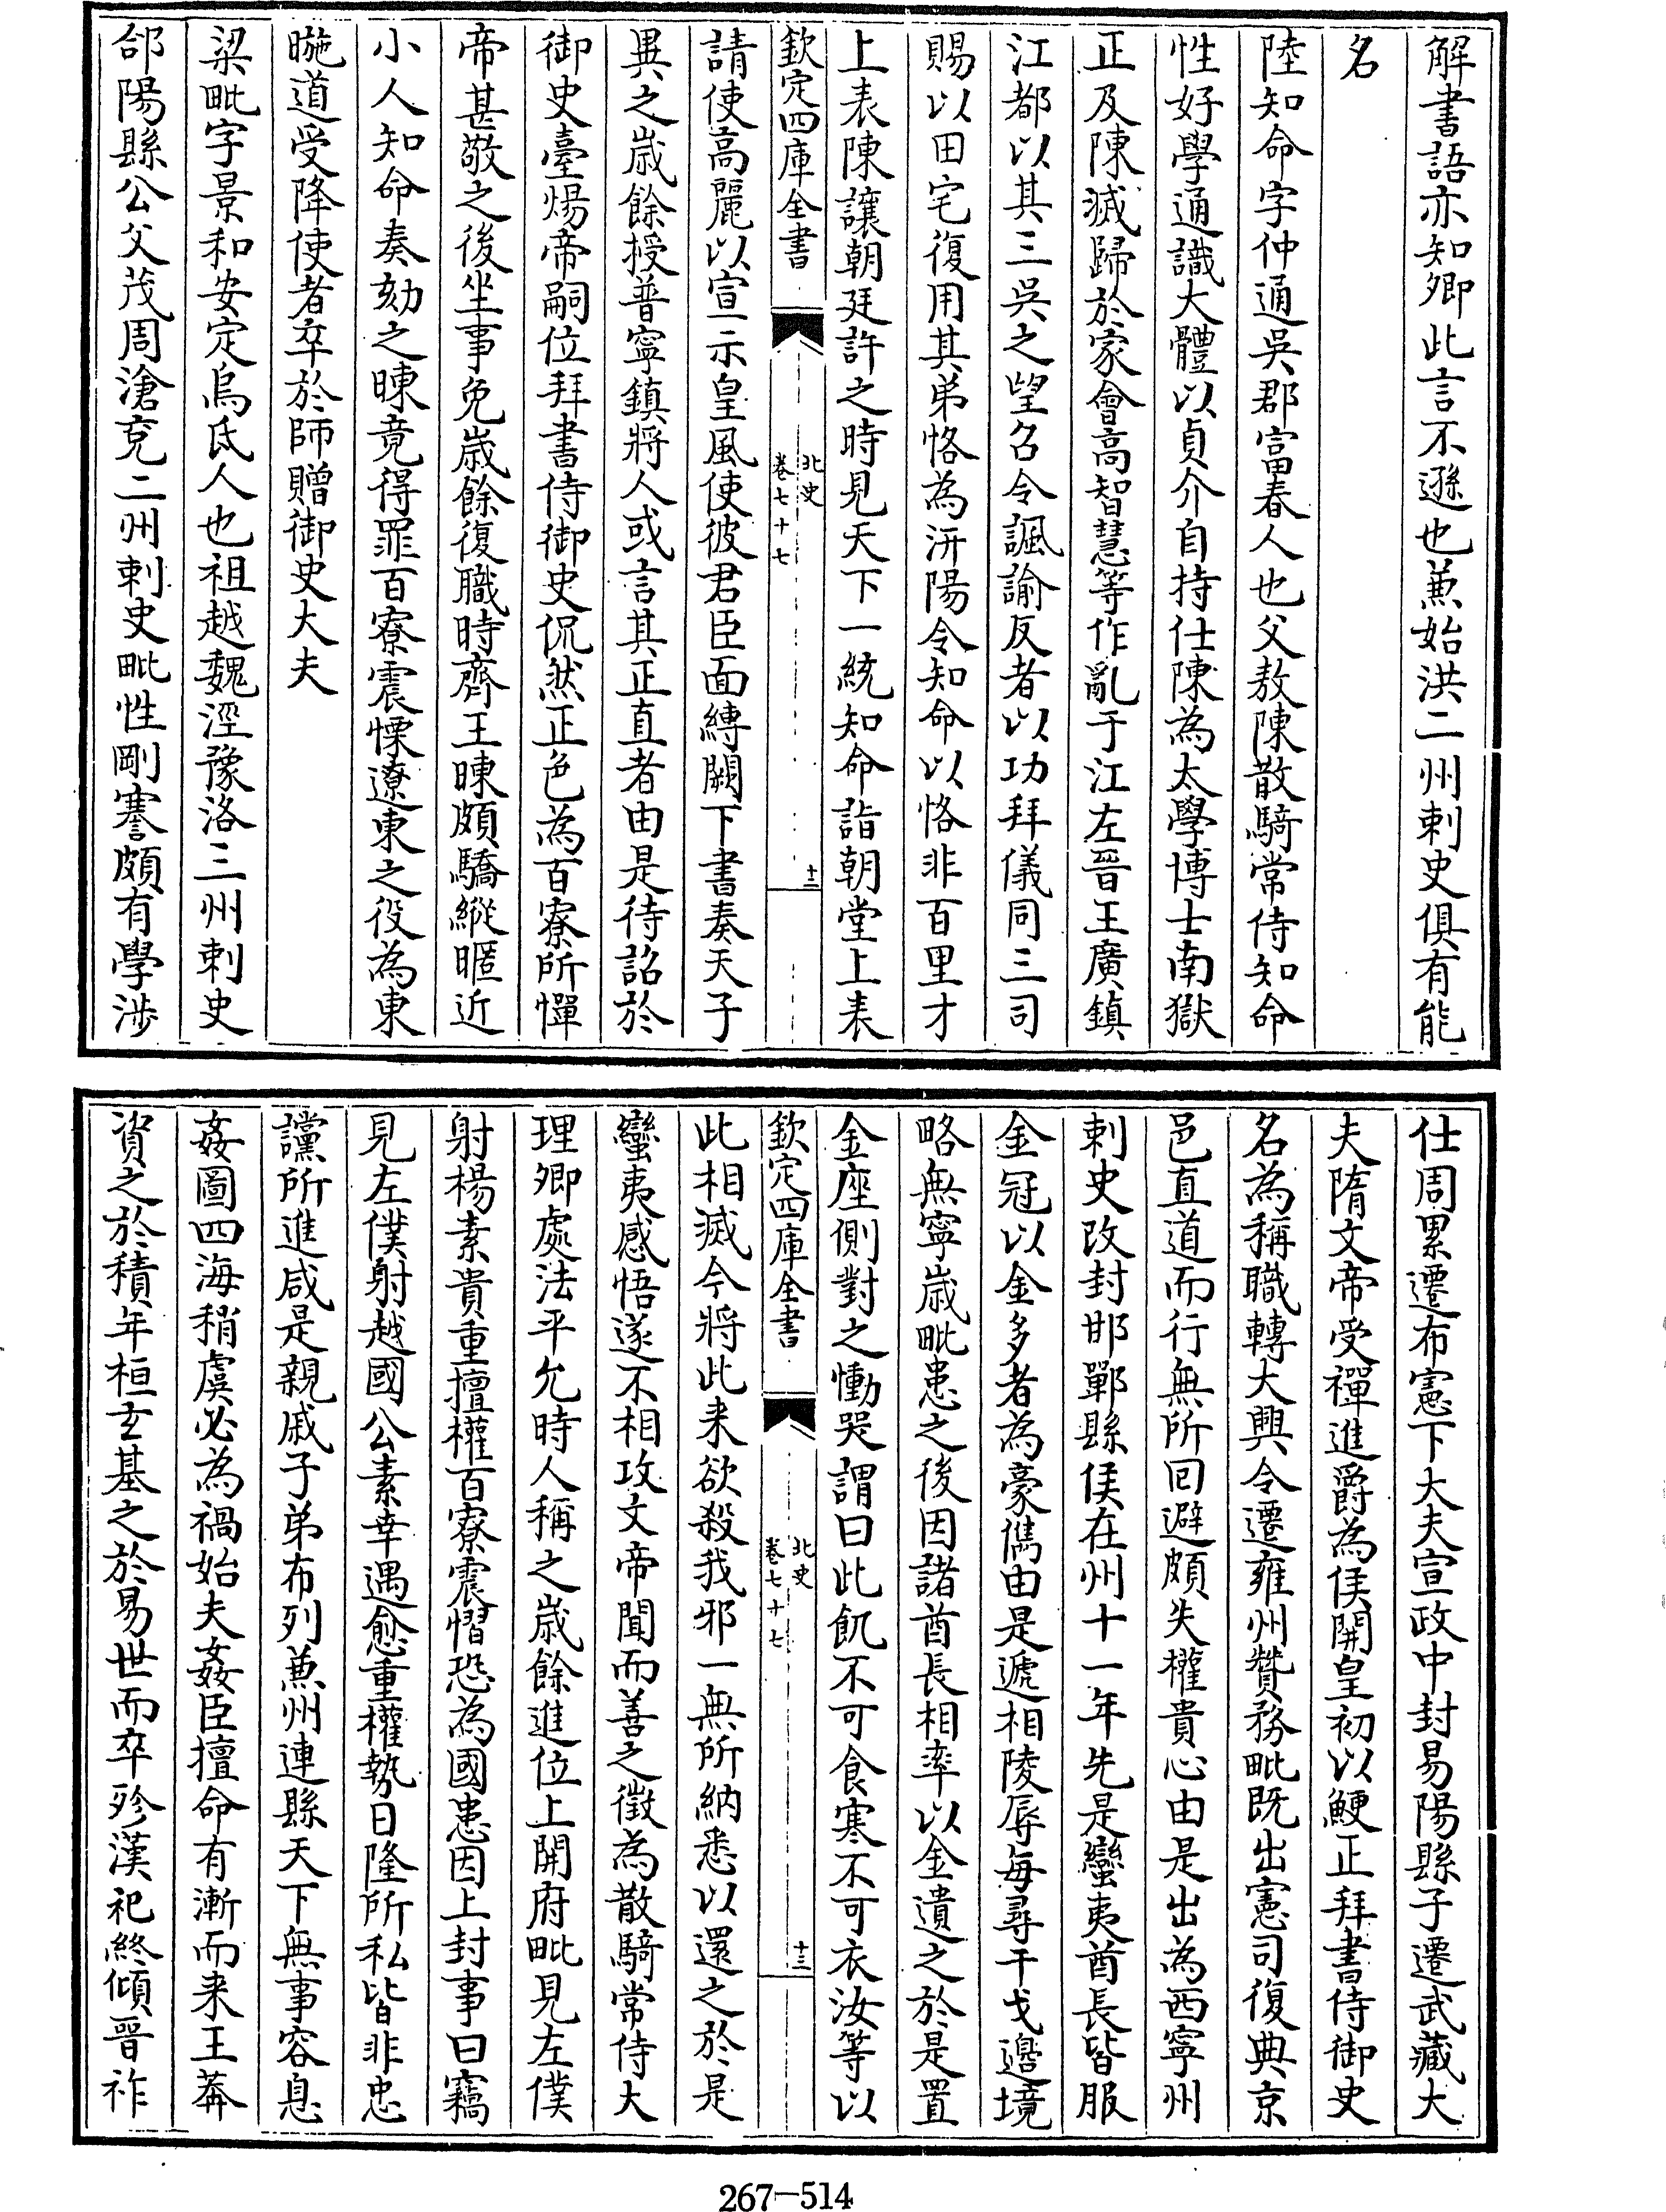 解書語亦知卿此言不遜也兼始洪二州刺史俱有能
名
陸知命字仲通吳郡富春人也父敖陳散騎常侍知命
性好學通識大體以貞介自持仕陳為太學博士南獄
正及陳滅歸於家會高智慧等作亂于江左晉王廣鎮
江都以其三吳之望召令諷諭反者以功拜儀同三司
賜以田宅復用其弟恪為汧陽令知命以恪非百里才
上表陳讓朝廷許之時見天下一統知命詣朝堂上表
欽定四庫全書
北史
卷七十七
十二
請使高麗以宣示皇風使彼君臣面縛闕下書奏天子
異之歲餘授普寧鎮將人或言其正直者由是待詔於
御史臺煬帝嗣位拜書侍御史侃然正色為百寮所憚
帝甚敬之後坐事免歲餘復職時齊王暕頗驕縱暱近
小人知命奏劾之暕竟得罪百寮震慄遼東之役為東
暆道受降使者卒於師贈御史大夫
梁毗字景和安定烏氏人也祖越魏涇豫洛三州刺史
郃陽縣公父茂周滄兗二州刺史毗性剛謇頗有學涉
仕周累遷布憲下大夫宣政中封易陽縣子遷武藏大
夫隋文帝受禪進爵為侯開皇初以鯁正拜書侍御史
名為稱職轉大興令遷雍州贊務毗既出憲司復典京
邑直道而行無所回避頗失權貴心由是出為西寧州
刺史改封邯鄲縣侯在州十一年先是蠻夷酋長皆服
金冠以金多者為豪儁由是遞相陵辱每尋干戈邊境
略無寧歲毗患之後因諸酋長相率以金遺之於是置
金座側對之慟哭謂曰此飢不可食寒不可衣汝等以
欽定四庫全書
北史
卷七十七
十三
此相滅今將此来欲殺我邪一無所納悉以還之於是
蠻夷感悟遂不相攻文帝聞而善之徵為散騎常侍大
理卿處法平允時人稱之歲餘進位上開府毗見左僕
射楊素貴重擅權百寮震慴恐為國患因上封事曰竊
見左僕射越國公素幸遇愈重權勢日隆所私皆非忠
讜所進咸是親戚子弟布列兼州連縣天下無事容息
姦圖四海稍虞必為禍始夫姦臣擅命有漸而来王莽
資之於積年桓玄基之於易世而卒殄漢祀終傾晉祚
267-514